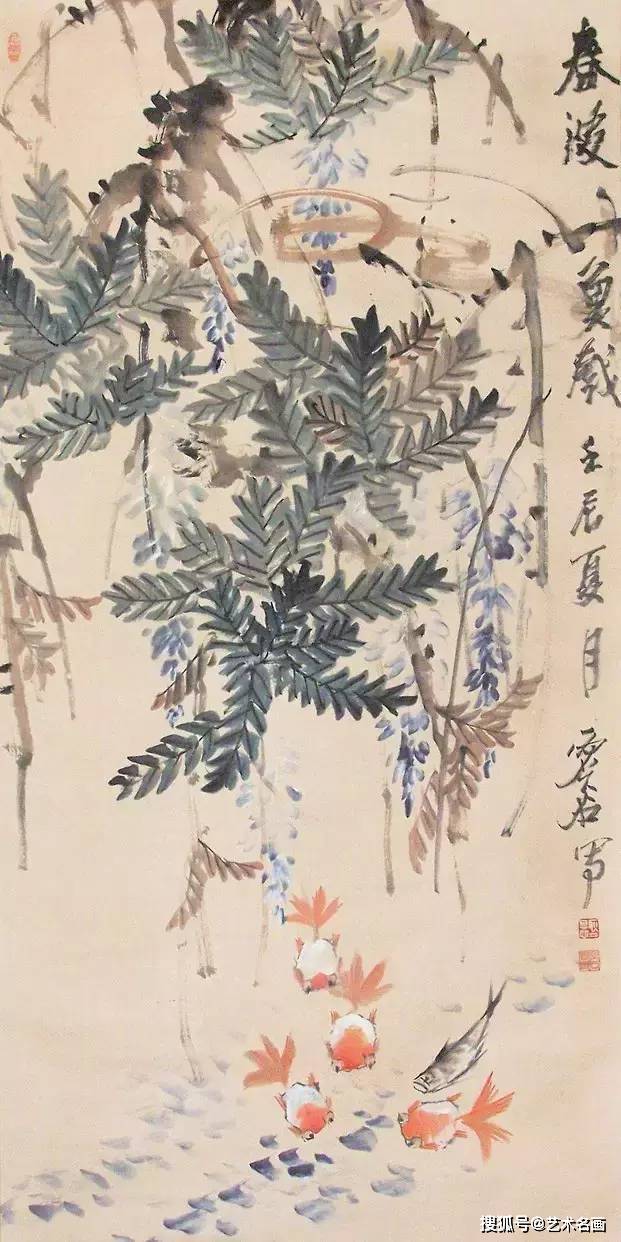 春波魚戲 壬辰夏月 写
搜狐号@艺术名画